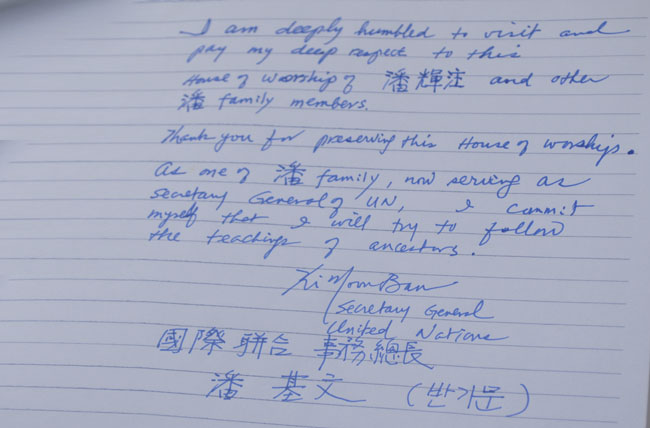 I am deeply humbled to visit and
pay my deep respect to this
House of worship of 潘輝注 and other
潘 family members.
Thank you for preserving this House of worship.
As one of 潘 family, now serving as
Secretary General of UN, I commit
myself that I will try to follow
the teachings of ancestors.
Ki Moon Ban
Secretary General
United Nations
國際聯合 事務總長
潘 基文 (반기문)